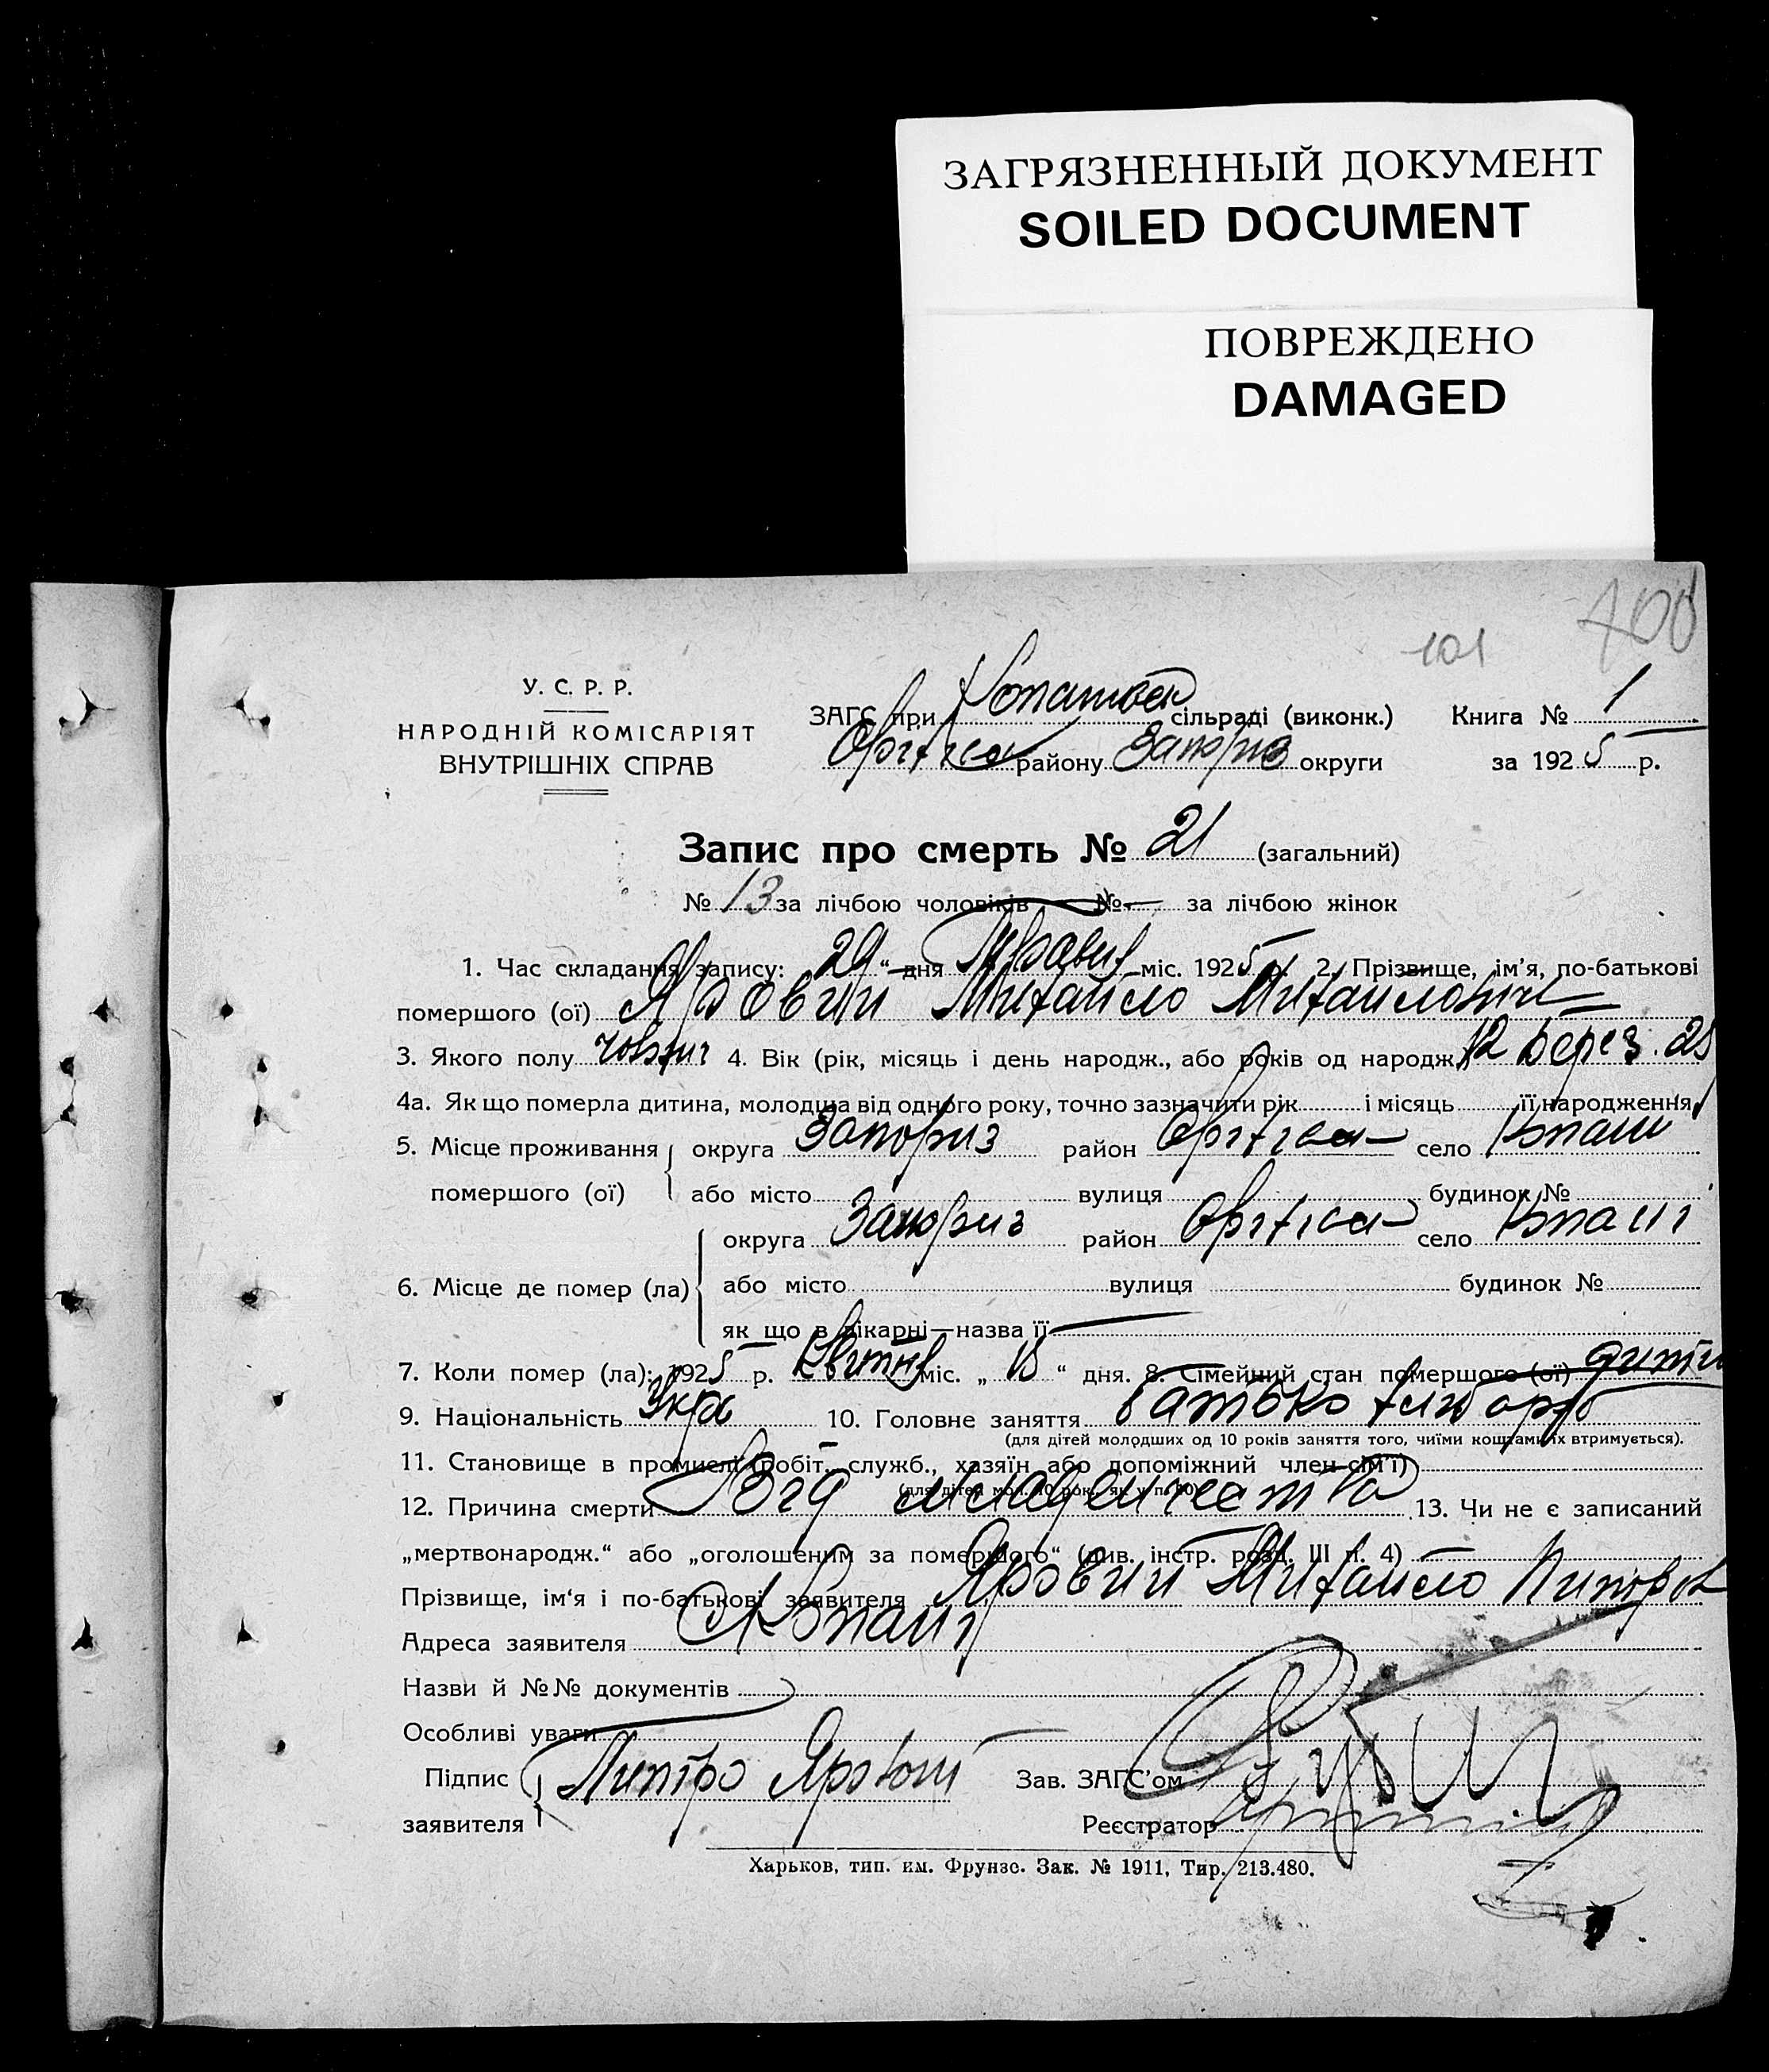 ЗАГРЯЗНЕННЫЙ ДОКУМЕНТ
SOILED DOCUMENT
ПОВРЕЖДЕНО
DAMAGED
101
У. С. Р. Р.
НАРОДНІЙ КОМІСАРІЯТ
ВНУТРІШНІХ СПРАВ
ЗАГС при сільраді (виконк.) Книга № 1
району Запориз округи за 1925 р.
Запис про смерть № 21 (загальний)
№ 13 за лічбою чоловіків № — за лічбою жінок
1. Час складання запису: 29 “ дня міс. 1925 р. 2. Прізвище, ім’я, по-батькові
помершого (ої) Яровий Михайло Михайлович
3. Якого полу 4. Вік (рік, місяць і день народж., або років од народж.) 12 Берез. 25
4а. Як що померла дитина, молодша від одного року, точно зазначити рік і місяць її народження
5. Місце проживання округа Запориз район село
помершого (ої) або місто вулиця будинок №
округа Запориз район село
6. Місце де помер (ла) або місто вулиця будинок №
як що в лікарні—назва її —
7. Коли помер (ла): 1925 р. Квітня міс. „ 15 “ дня. 8. Сімейний стан помершого (ої)
9. Національність Укр 10. Головне заняття батько хлібороб
(для дітей молодших од 10 років заняття того, чиїми коштами їх втримується).
11. Становище в промислі (робіт., служб., хазяїн або допоміжний член сім’ї)
(для дітей мол. 10 рок., як у п. 10)
12. Причина смерти Від младенчества 13. Чи не є записаний
„мертвонародж.“ або „оголошеним за помершого“ (див. інстр. розд. III п. 4)
Прізвище, ім‘я і по-батькові заявителя Яровий Михайло
Адреса заявителя
Назви й №№ документів
Особливі уваги
Підпис Зав. ЗАГС’ом
заявителя Реєстратор
Харьков, тип. им. Фрунзе. Зак. № 1911, Тир. 213.480.